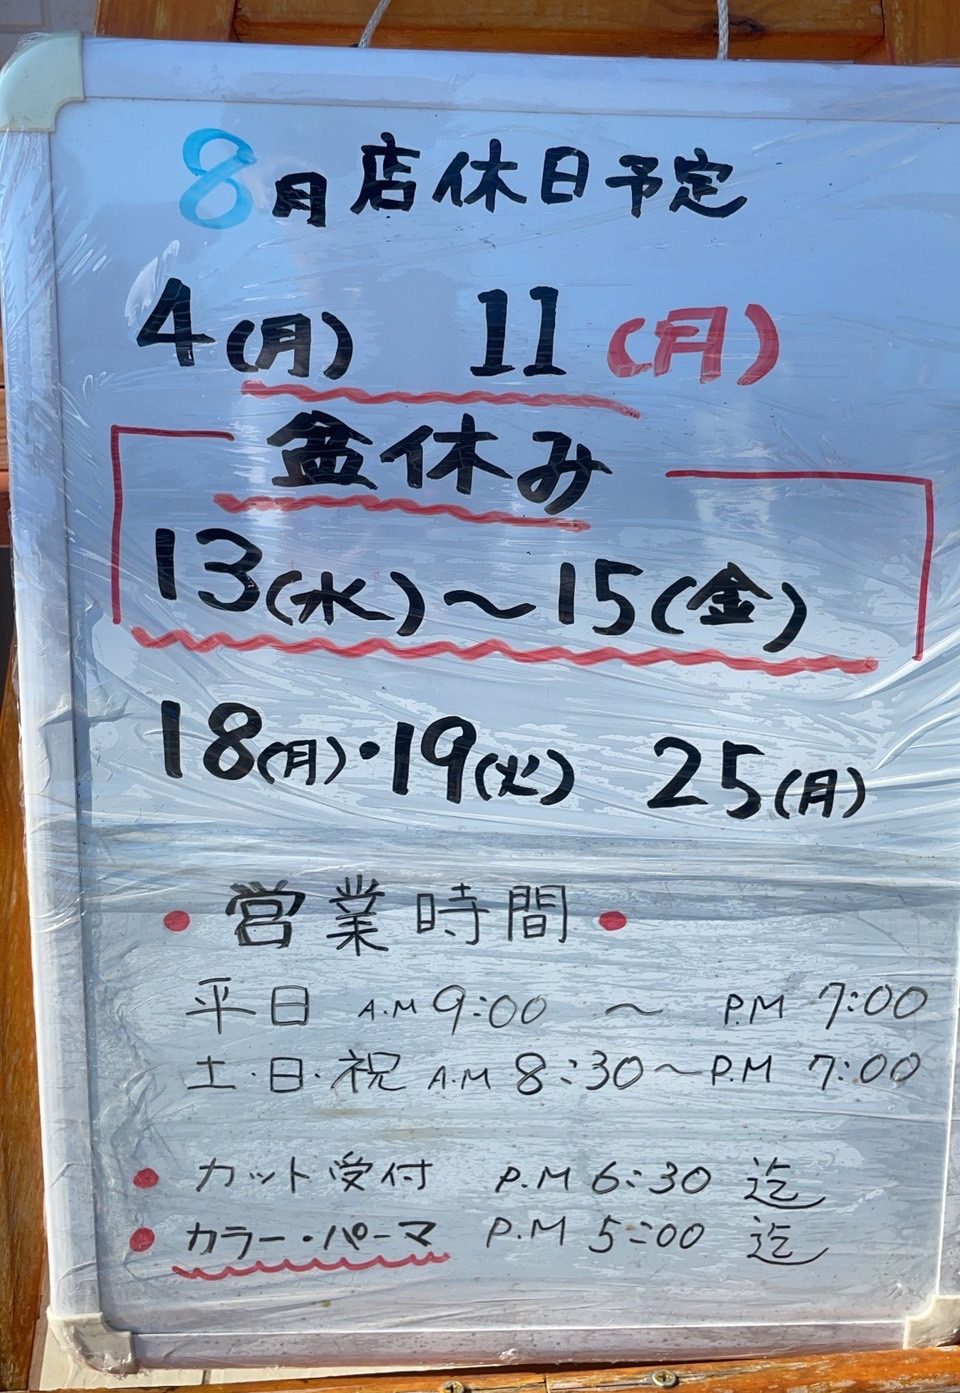 8月店休日予定
4(月) 11(月)
盆休み
13(水)～15(金)
18(月)・19(火) 25(月)
・営業時間・
平日 A.M 9:00 ～ P.M 7:00
土・日・祝 A.M 8:30～P.M 7:00
・カット受付 P.M 6:30 迄
・カラー・パーマ P.M 5:00 迄